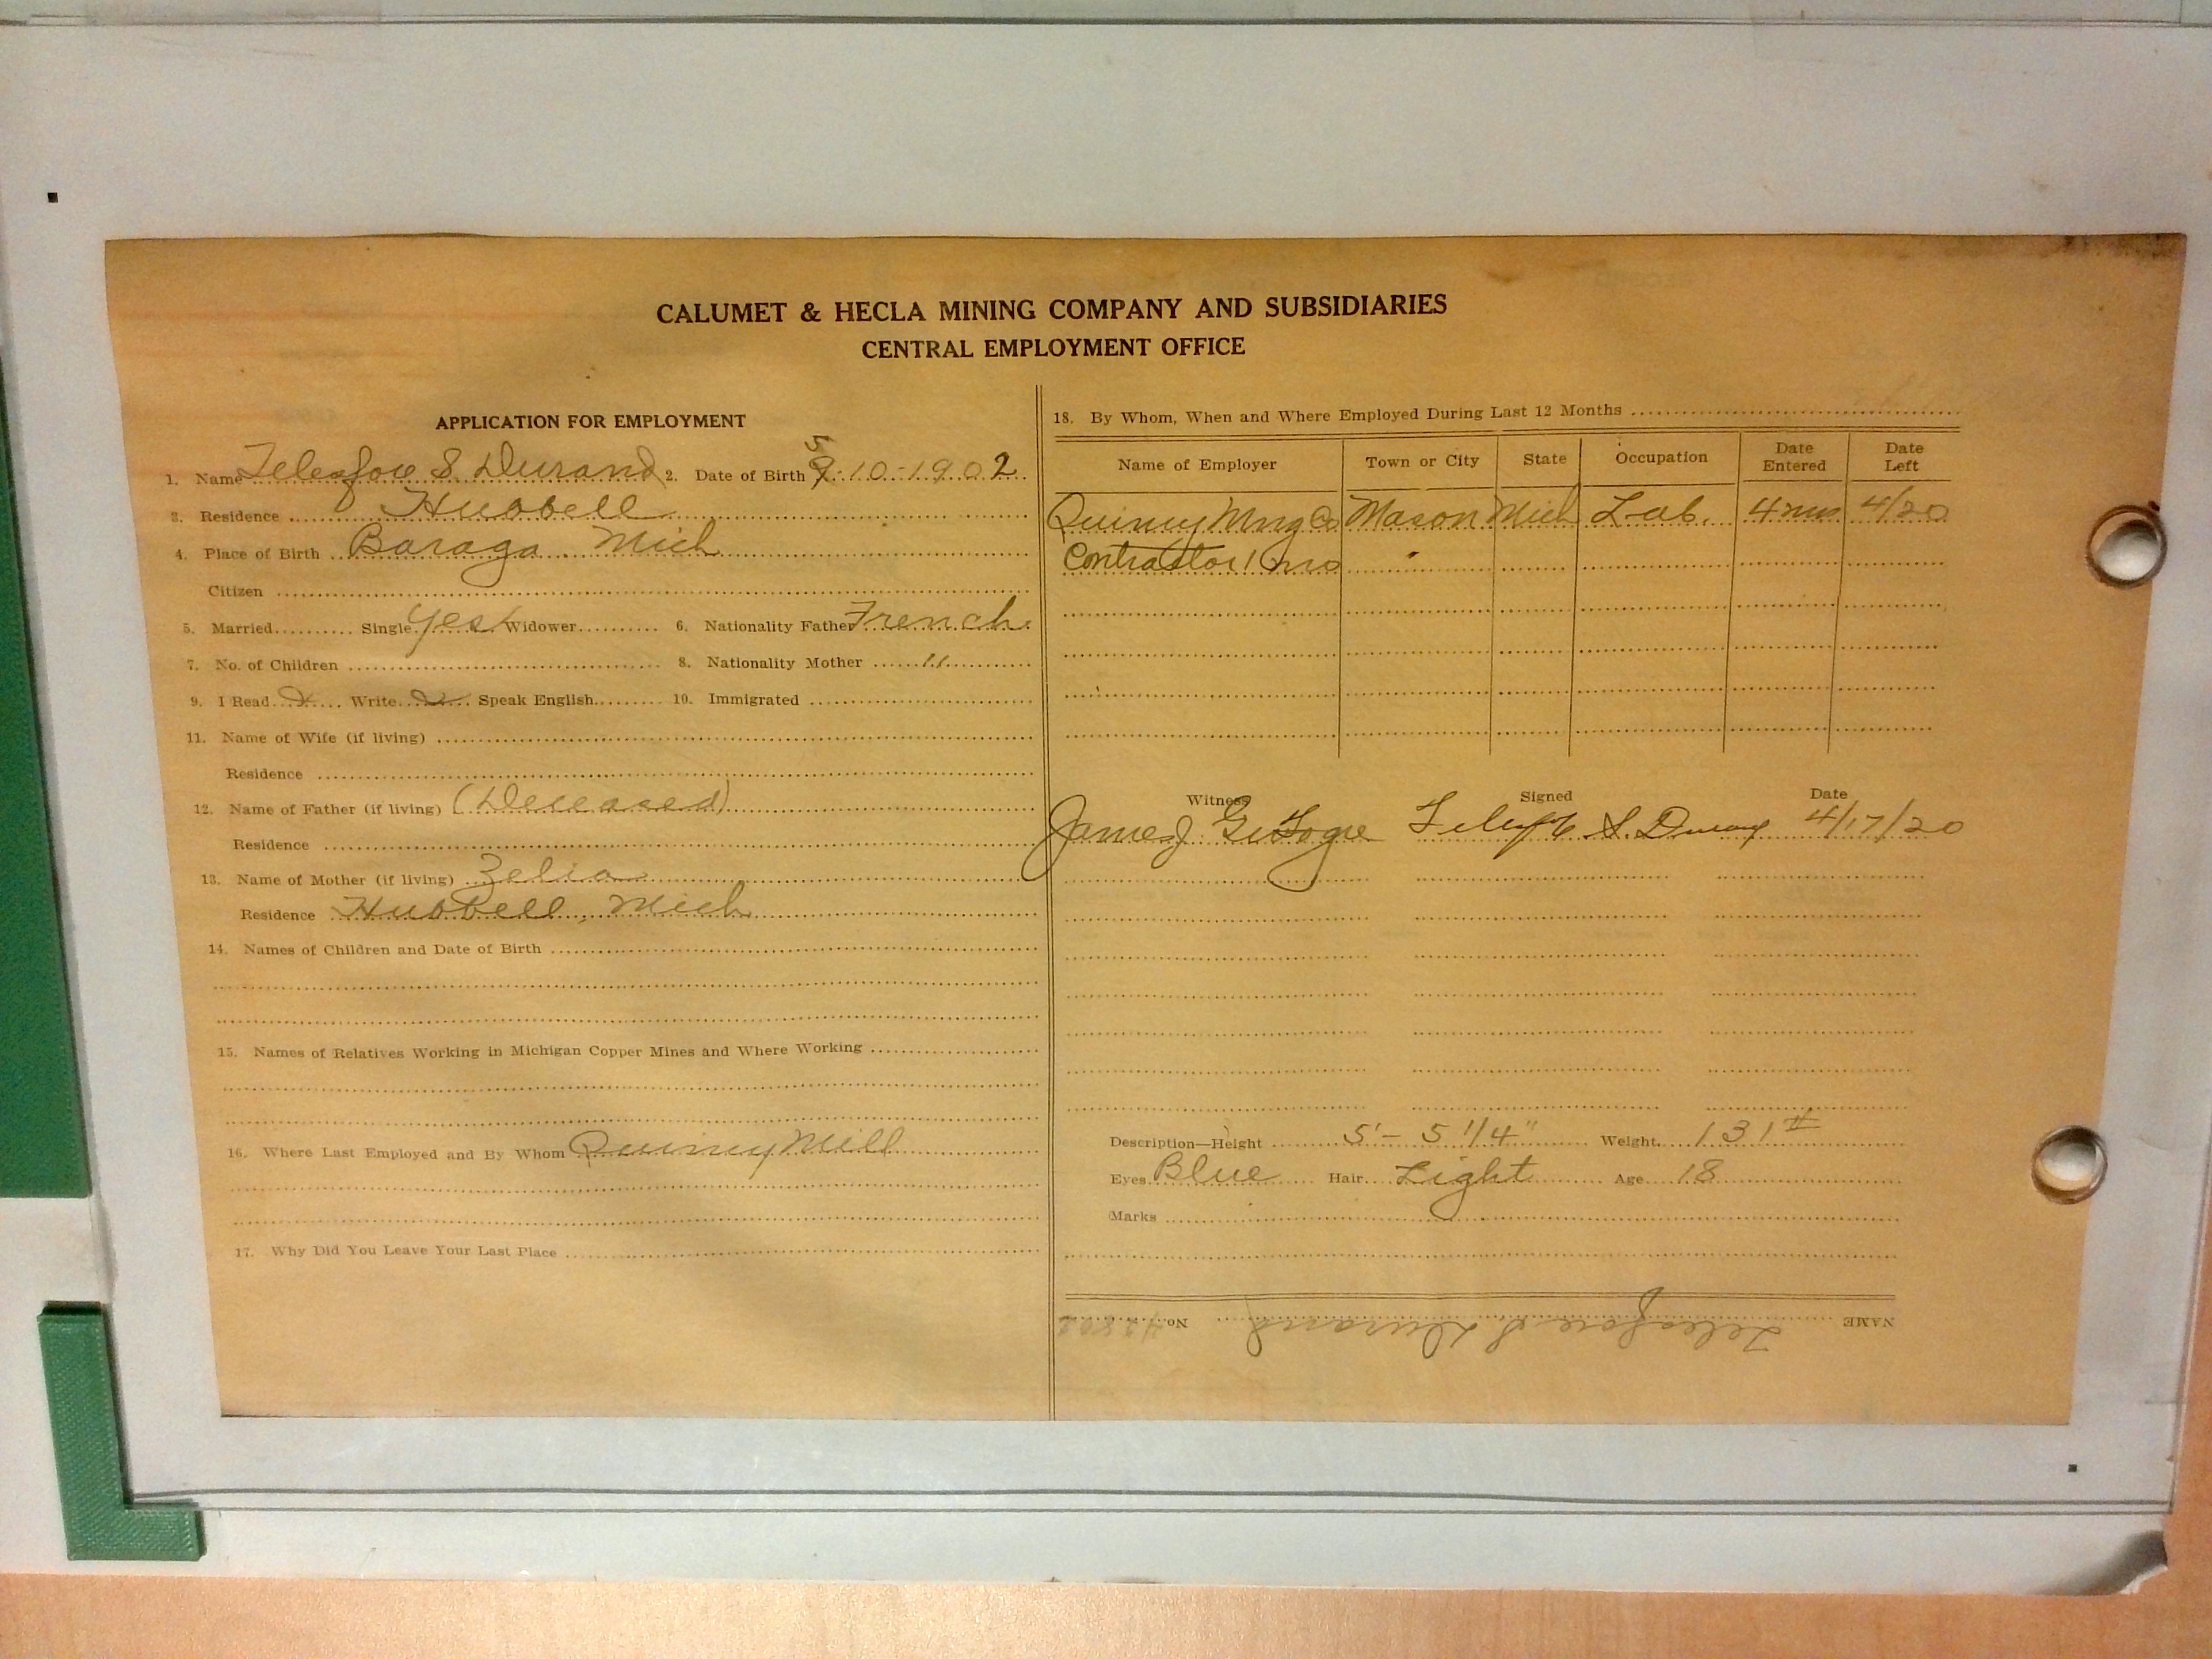 CALUMET & HECLA MINING COMPANY AND SUBSIDIARIES
CENTRAL EMPLOYMENT OFFICE
APPLICATION FOR EMPLOYMENT
1. Name Telesfore S. Durand 2. Date of Birth 5-10-1902
3. Residence Hubbell
4. Place of Birth Baraga Mich
Citizen
5. Married Single Yes Widower 6. Nationality Father French
7. No. of Children 8. Nationality Mother "
9. I Read Write Speak English 10. Immigrated
11. Name of Wife (if living)
Residence
12. Name of Father (if living) (Deceased)
Residence
13. Name of Mother (if living) Zelia
Residence Hubbell, Mich
14. Names of Children and Date of Birth
15. Names of Relatives Working in Michigan Copper Mines and Where Working
16. Where Last Employed and By Whom Quincy Mill
17. Why Did You Leave Your Last Place
18. By Whom, When and Where Employed During Last 12 Months
Name of Employer Town or City State Occupation Date Entered Date Left
Quincy Mng Co Mason Mich Lab. 4 mos 4/20
Contractor 1 mo
Witness Signed Date
James J. S. Durand 4/17/20
Description—Height 5'- 5 1/4" Weight 131 #
Eyes Blue Hair Light Age 18
Marks
NAME Telesfore S. Durand No.